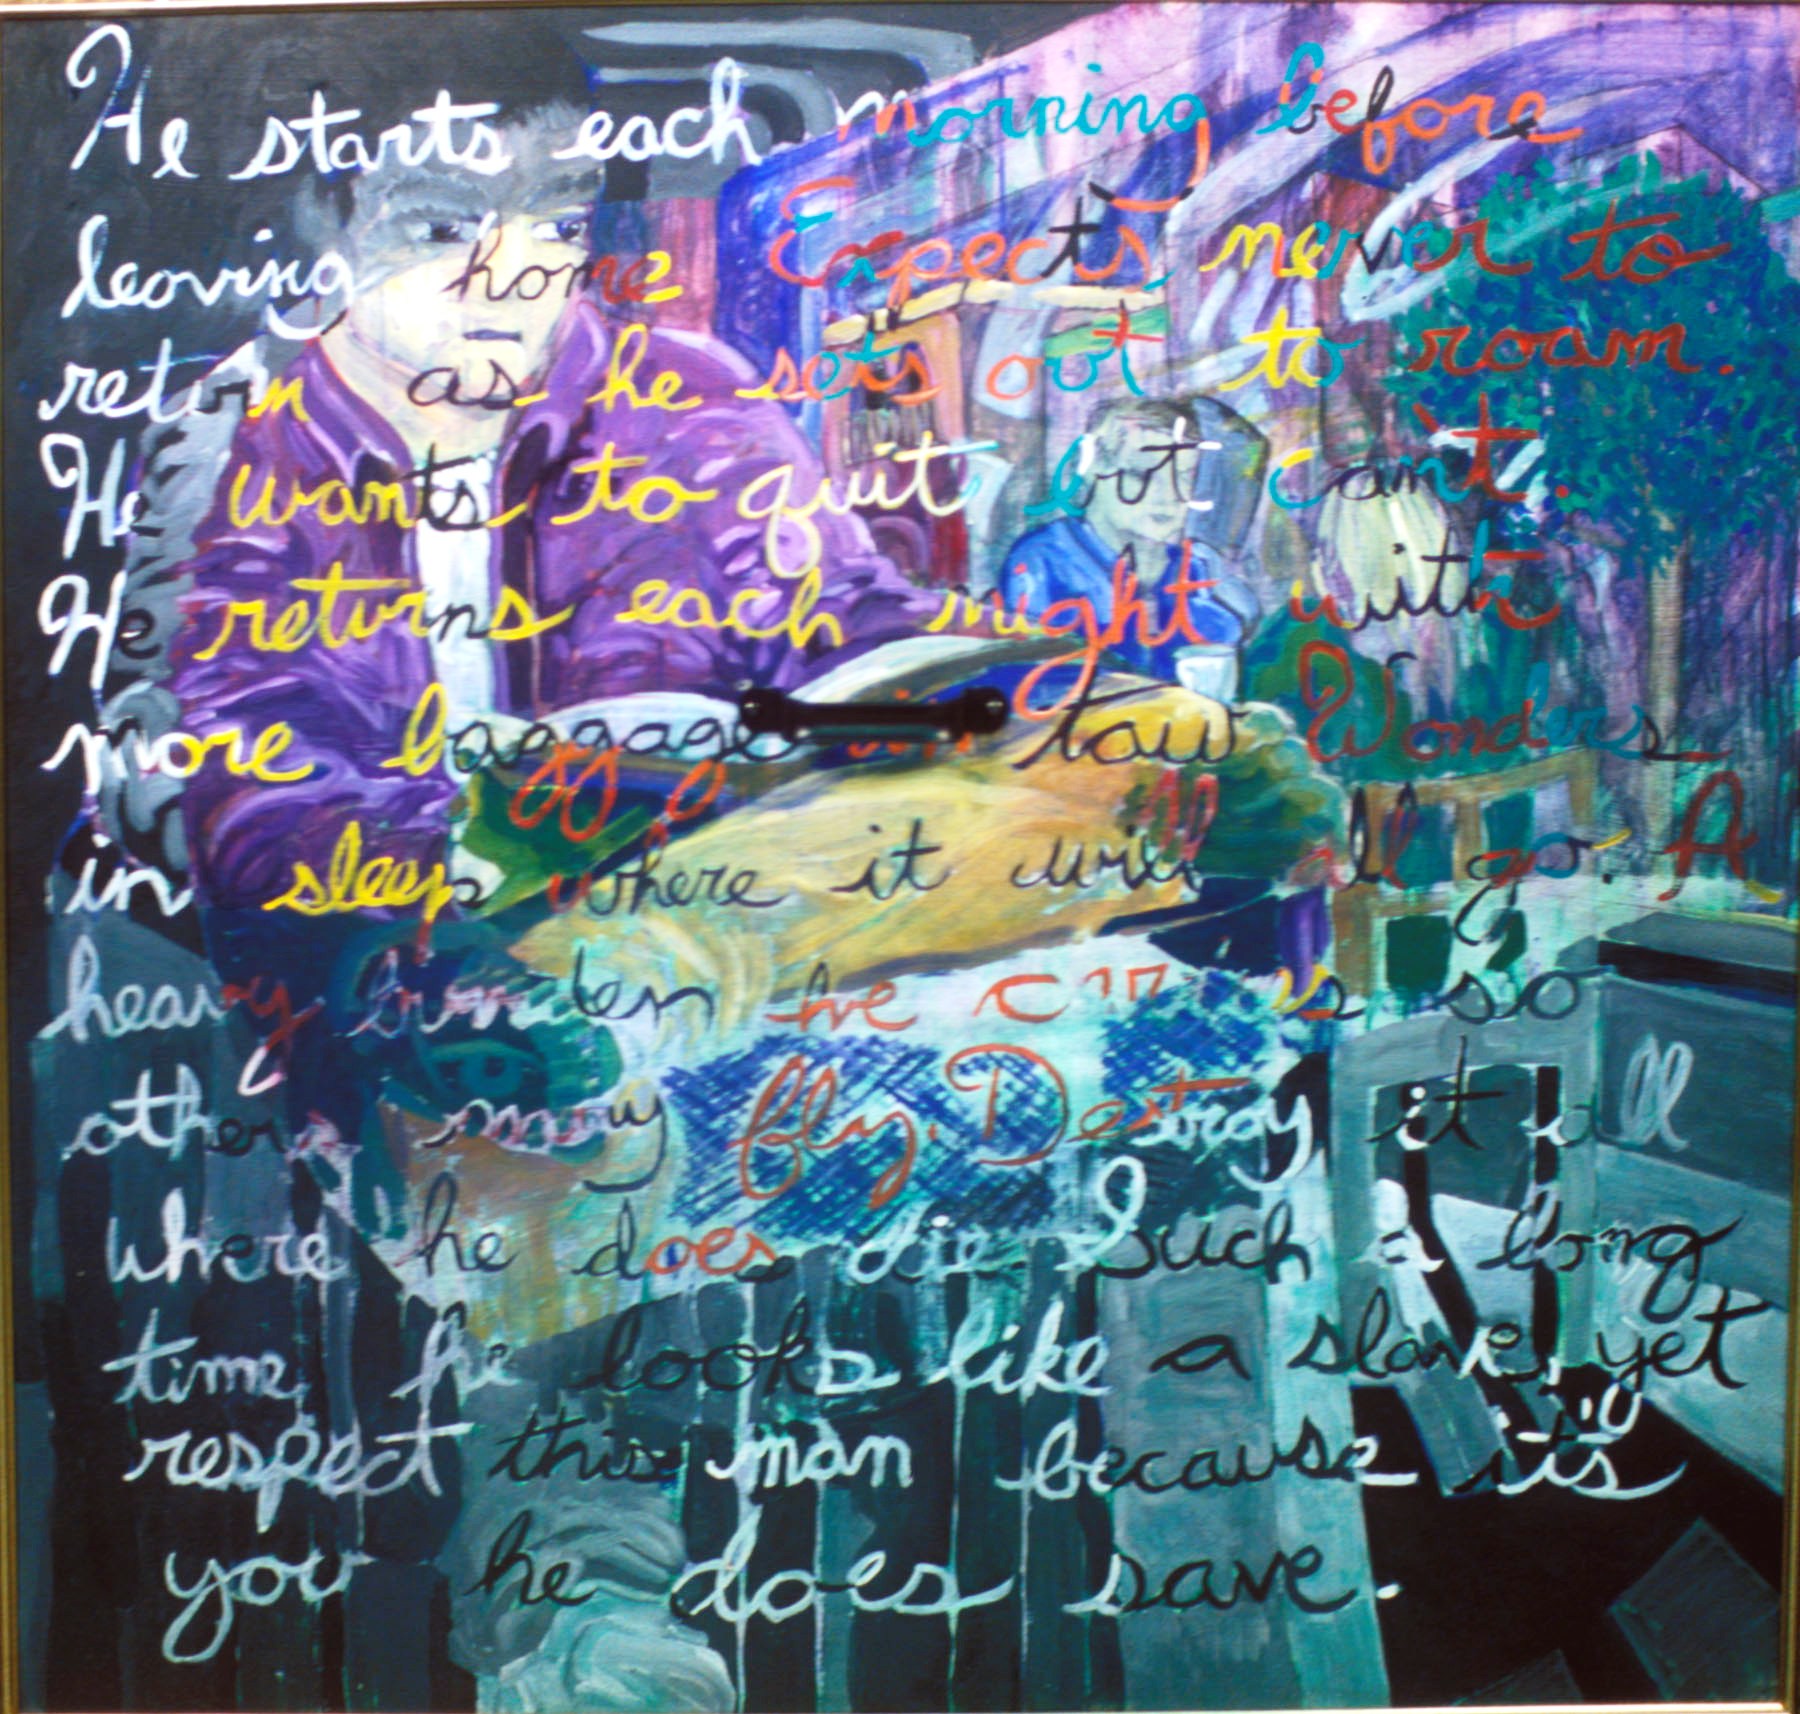 He starts each morning before
leaving home Expects never to
return as he sets out to roam.
He wants to quit but can't.
He returns each night with
more baggage in tow Wonders
in sleep where it will all go. A
heavy burden he carries so
others may fly. Destroy it all
where he does die Such a long
time he looks like a slave, yet
respect this man because it's
you he does save.